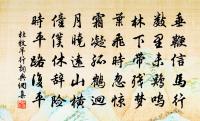 垂鞭信馬行
數里未鷄鳴
林下帶殘夢
葉飛時忽驚
霜凝孤鶴迥
月曉遠山橫
僮僕休辭險
時平路復平
杜牧早行詞典網集